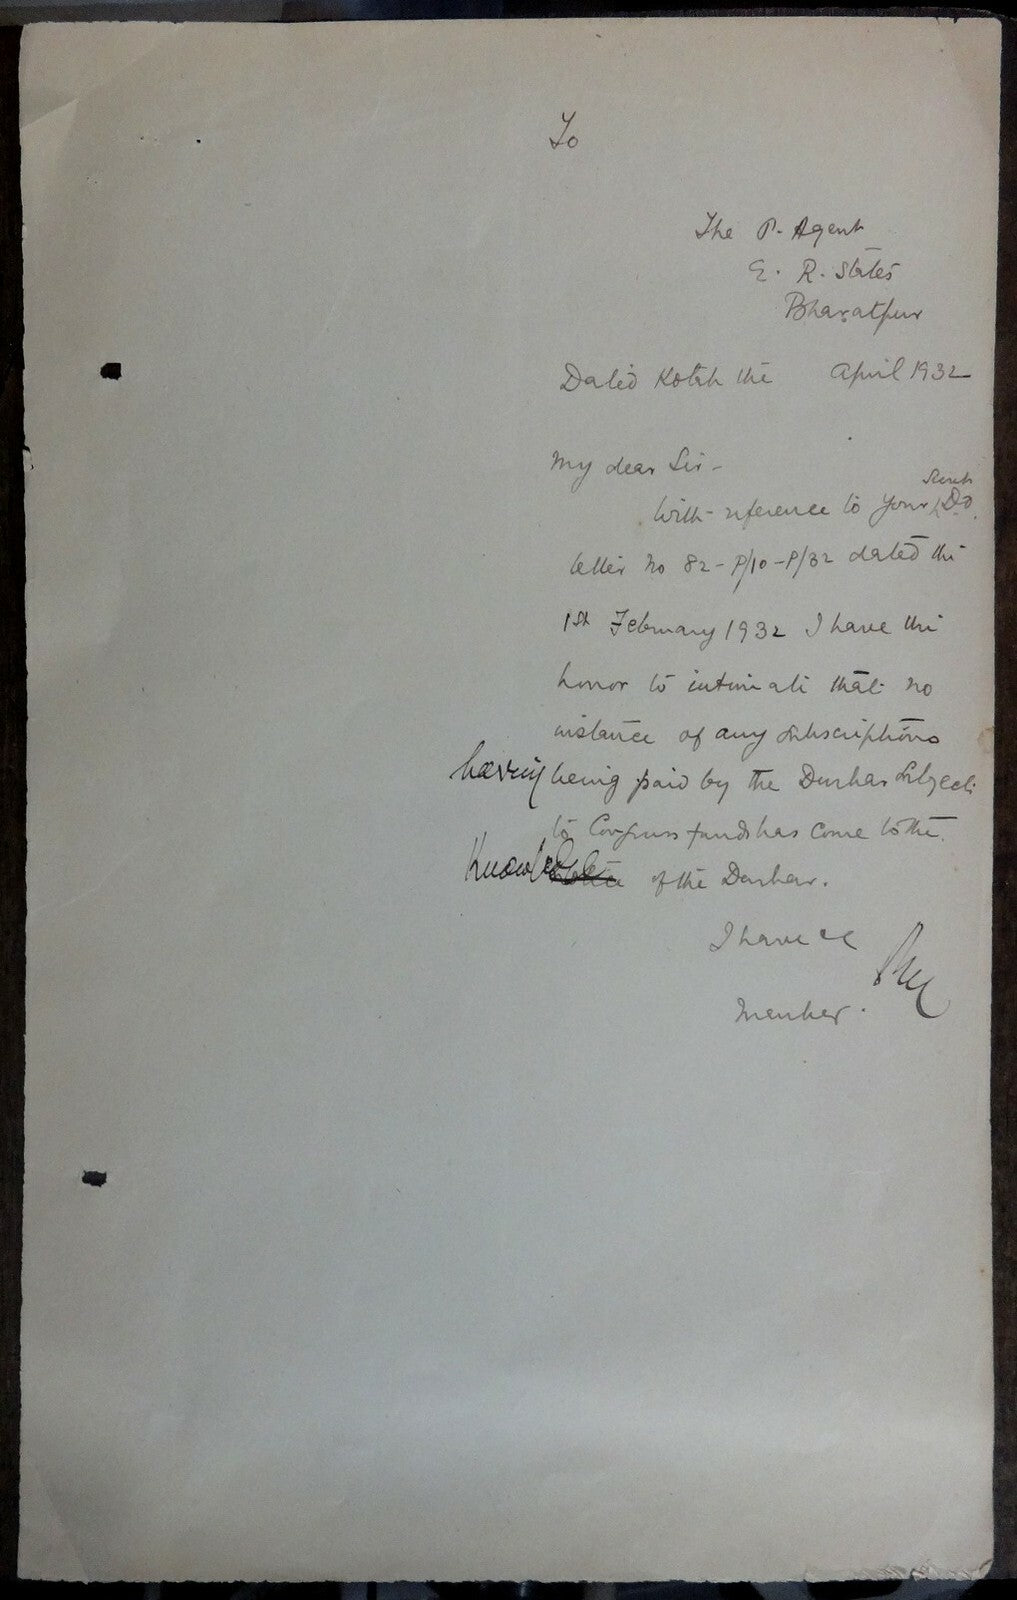 To
The P. Agent
E. R. States
Bharatpur
Dated Kotah the April 1932
My dear Sir -
Secret
With reference to your D.O.
letter No 82-P/10-P/32 dated the
1st February 1932 I have the
honor to intimate that no
instance of any subscriptions
having being paid by the Durbar Subjects
to Congress funds has come to the
Knowledge of the Darbar.
I have &c
Member.